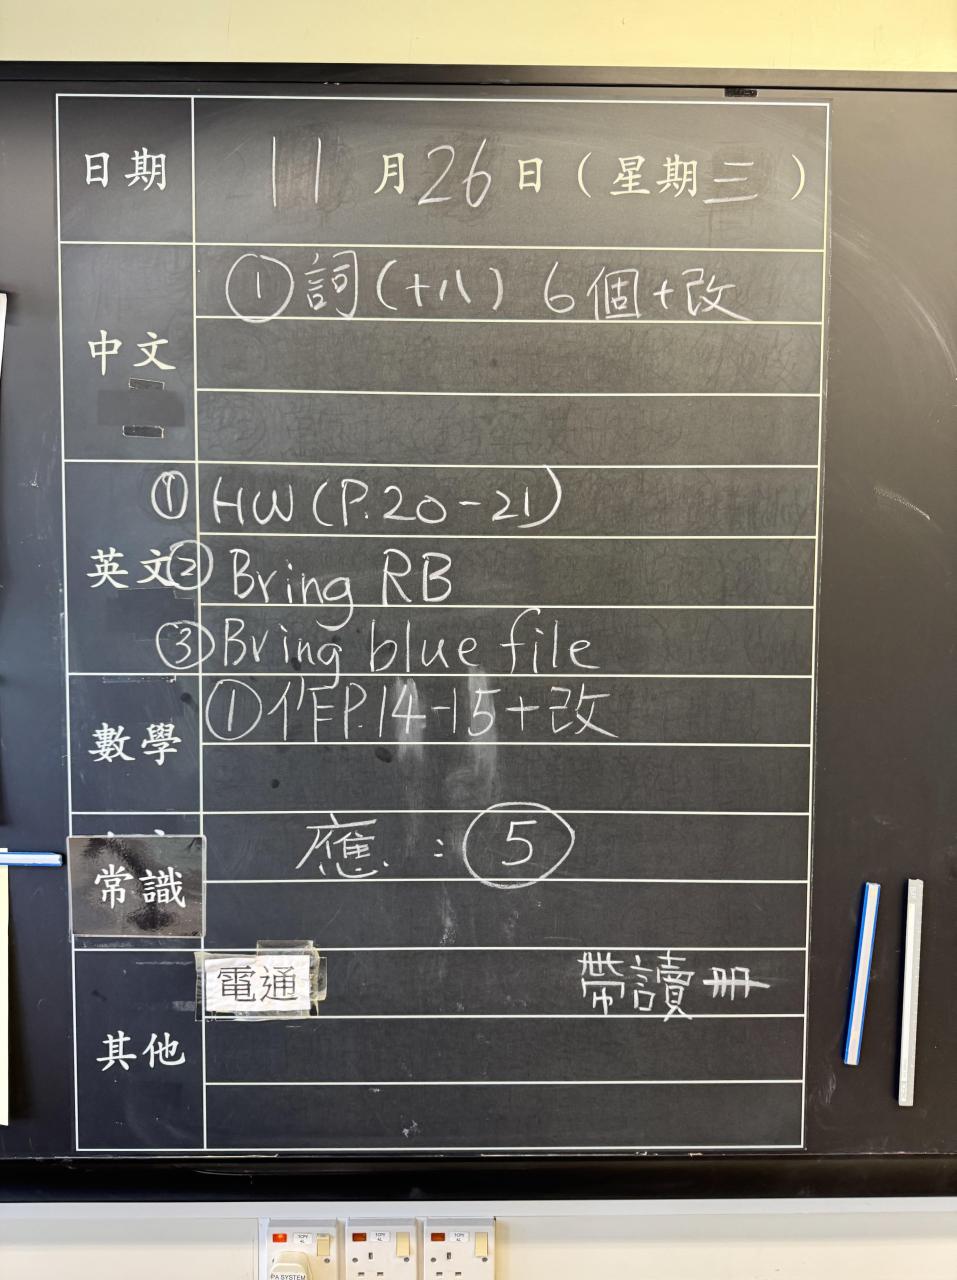 日期 11月26日（星期三）
中文 ①詞(十八) 6個+改
英文
① HW (P.20-21)
② Bring RB
③ Bring blue file
數學 ①作P.14-15+改
常識 應：⑤
其他 電通 帶讀冊
PA SYSTEM